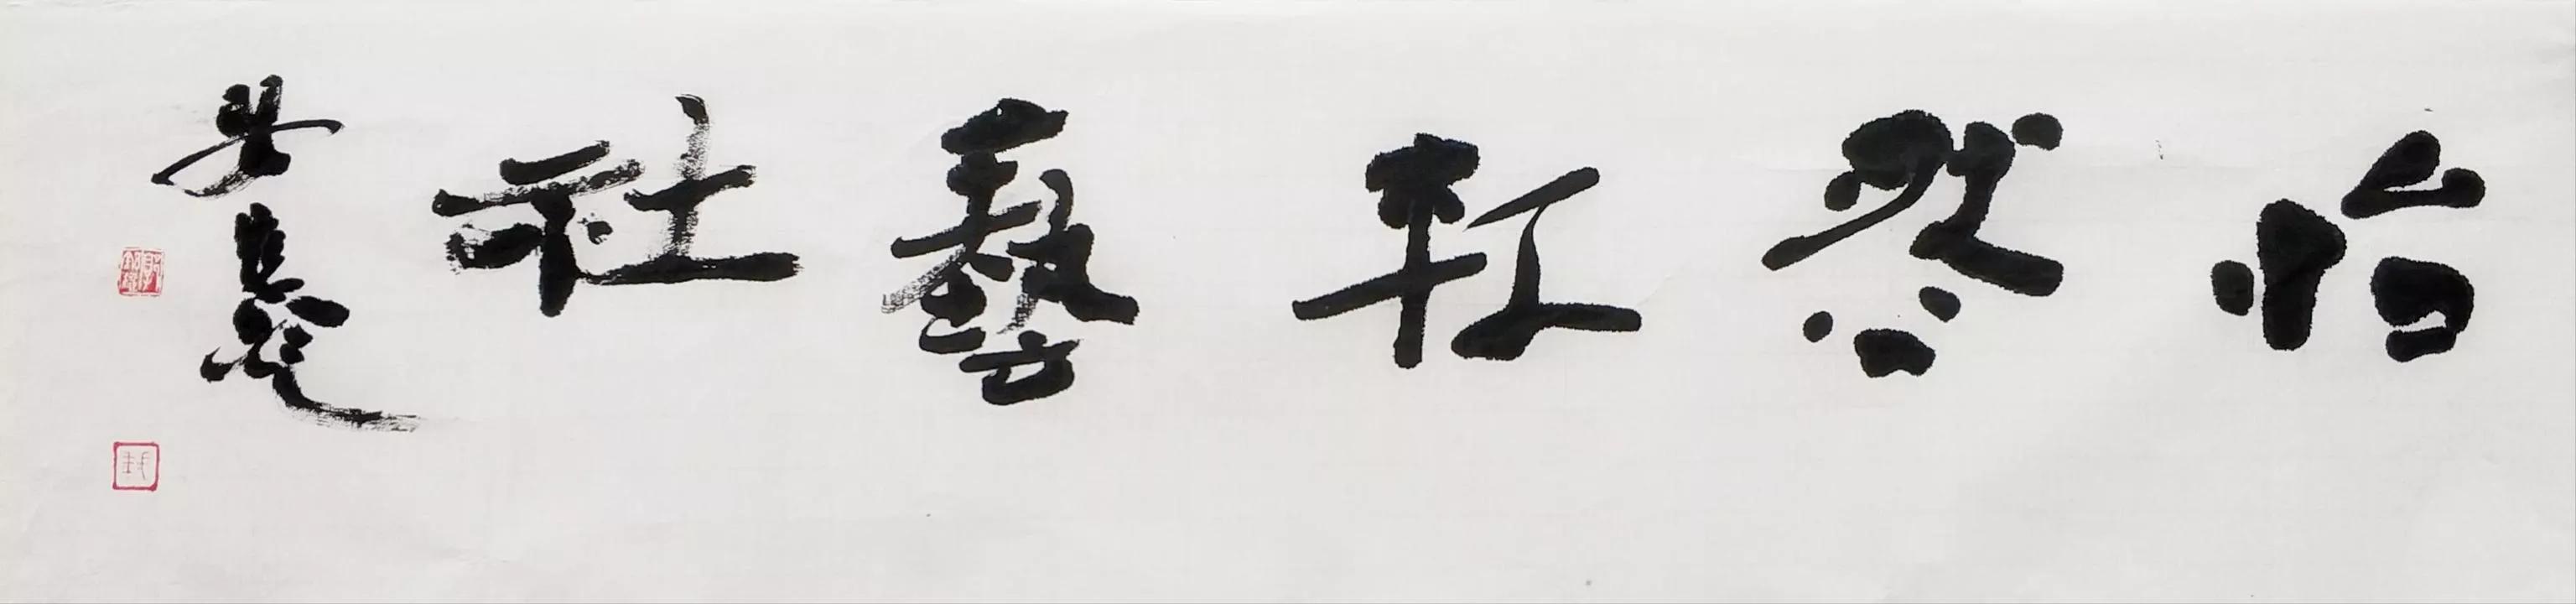 怡然軒藝社